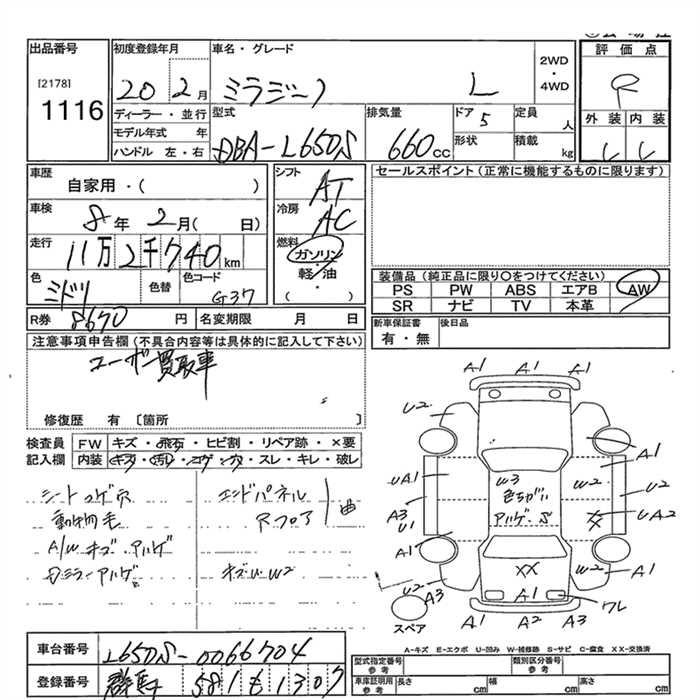 出品番号
[2178]
1116
初度登録年月
20 2月
ディーラー・並行
モデル年式 年
ハンドル 左・右
車名・グレード
ミラジーノ L
2WD
・
4WD
型式
DBA-L650S
排気量
660cc
ドア
5
形状
定員
人
積載
kg
評価点
R
外装 内装
C C
車歴
自家用・( )
車検
8年2月( 日)
走行
11万2千740km
色
ミドリ
色替
色コード
G37
R券 8670 円
名変期限 月 日
シフト
AT
冷房
AC
燃料
ガソリン
軽油
・
( )
セールスポイント(正常に機能するものに限ります)
装備品(純正品に限り○をつけてください)
PS PW ABS エアB AW
SR ナビ TV 本革
新車保証書
有・無
後日品
注意事項申告欄(不具合内容等は具体的に記入して下さい)
ユーザー買取車
修復歴 有〔箇所 〕
検査員
記入欄
FW キズ・飛石・ヒビ割・リペア跡・×要
内装 キズ・汚レ・コゲ・穴・スレ・キレ・破レ
シートコゲ穴
動物毛
A/Wキズ・アルゲ
Dミラーアルゲ
エンドパネル
Rフロア
曲
キズU・W2
A1 A1 A1
U2
A1
UA1
W2
U2
W3
色ちがい
アルゲ・S
A3
U1
XX
UA2
A1
XX
W2
A1
A1
U2
A3
ワレ
A2 A2 A3
スペア
A-キズ E-エクボ U-凹み W-補修跡 S-サビ C-腐食 XX-交換済
車台番号
L650S-0066704
登録番号
群馬 581 も 1307
型式指定番号
参考
類別区分番号
参考
車庫証明用
参考
長さ cm
幅 cm
高さ cm